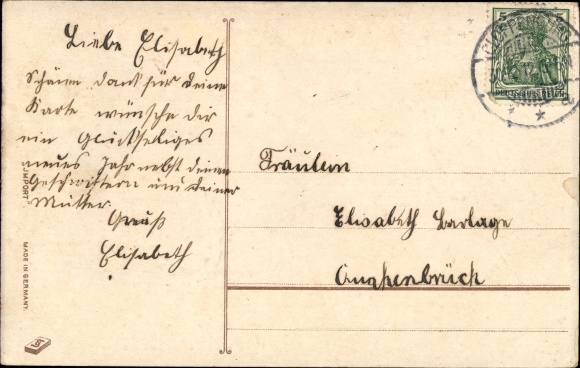 Liebe Elisabeth
Schönen dank für deine
Karte wünsche dir
ein Glückseliges
neues Jahr nebst deinen
Geschwistern und deiner
Mutter.
Gruß
Elisabeth
Fräulein
Elisabeth Barlage
IMPORT
MADE IN GERMANY.
5
DEUTSCHES REICH